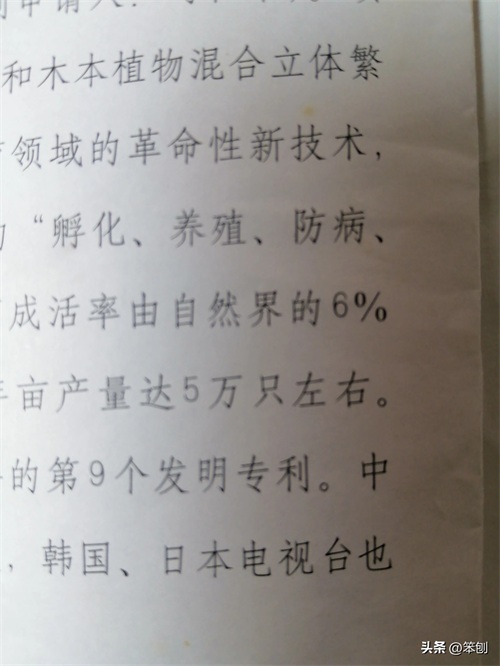 申请人
和木本植物混合立体繁
领域的革命性新技术,
“孵化、养殖、防病、
成活率由自然界的6%
亩产量达5万只左右。
的第9个发明专利。中
韩国、日本电视台也
头条 @笨刨